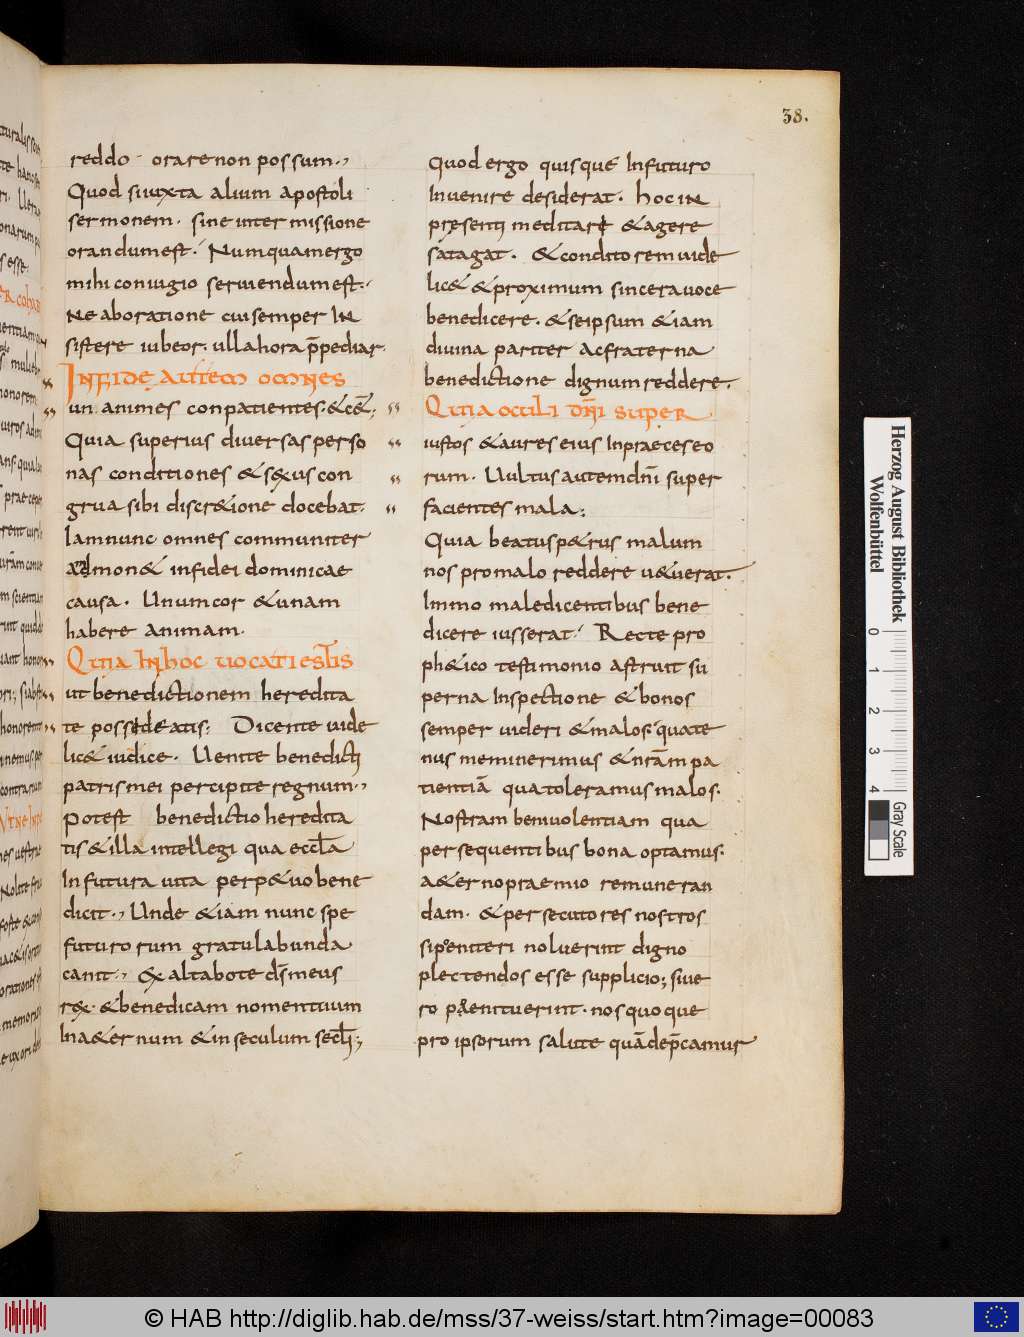 38.
reddo · orare non possum.,
Quod si iuxta alium apostoli
sermonem · sine intermissione
orandum est · Numquam ergo
mihi coniugio seruiendum est ·
Ne ab oratione cui semper In
sistere iubeor · ulla hora p̄pediar.
In fide autem omnes
un animes conpatientes · &c&;
Quia superius diuersas perso
nas conditiones & sexus con
grua sibi discr&ione docebat ·
Iam nunc omnes communiter
admon& in fidei dominicae
causa · Unum cor & unam
habere animam.
Quia In hoc uocati estis
ut benedictionem heredita
te possideatis; Dicente uide
lic& iudice · Uenite benedicti
patris mei percipite regnum.,
Potest benedictio heredita
tis & illa intellegi qua eccl̄a
In futura uita perp&uo bene
dicit., Unde & iam nunc spe
futurorum gratulabunda
canit., Exaltabo te ds̄ meus
rex · & benedicam nomen tuum
In a&ernum & in seculum secl̄i;
Quod ergo quisque In futuro
Inuenire desiderat · hoc in
pręsenti meditari & agere
satagat · & conditorem uide
lic& & proximum sincera uoce
benedicere · & se ipsum & iam
diuina pariter ac fraterna
benedictione dignum reddere.
Quia oculi dn̄i super
iustos & aures eius In praeces eo
rum · Uultus autem dn̄i super
facientes mala;
Quia beatus p&rus malum
nos pro malo reddere u&uerat.
Immo maledicentibus bene
dicere iusserat · Recte pro
ph&ico testimonio astruit su
perna Inspectione & bonos
semper uideri & malos · quate
nus meminerimus & nr̄am pa
tientiā qua toleramus malos.
Nostram beniuolentiam qua
persequentibus bona optamus.
a&erno praemio remuneran
dam · & persecutores nostros
si peniteri noluerint digno
plectendos esse supplicio; siue
ro paenituerint · nos quoque
pro ipsorum salute quā dep̄camur
Herzog August Bibliothek
Wolfenbüttel
0 1 2 3 4
Gray Scale
© HAB http://diglib.hab.de/mss/37-weiss/start.htm?image=00083